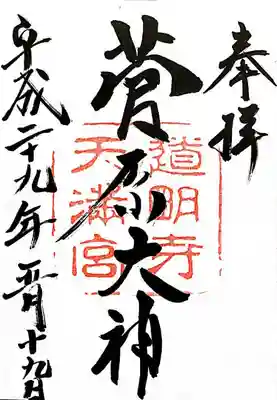 奉拝
菅原大神
道明寺
天満宮
平成二十九年五月十九日